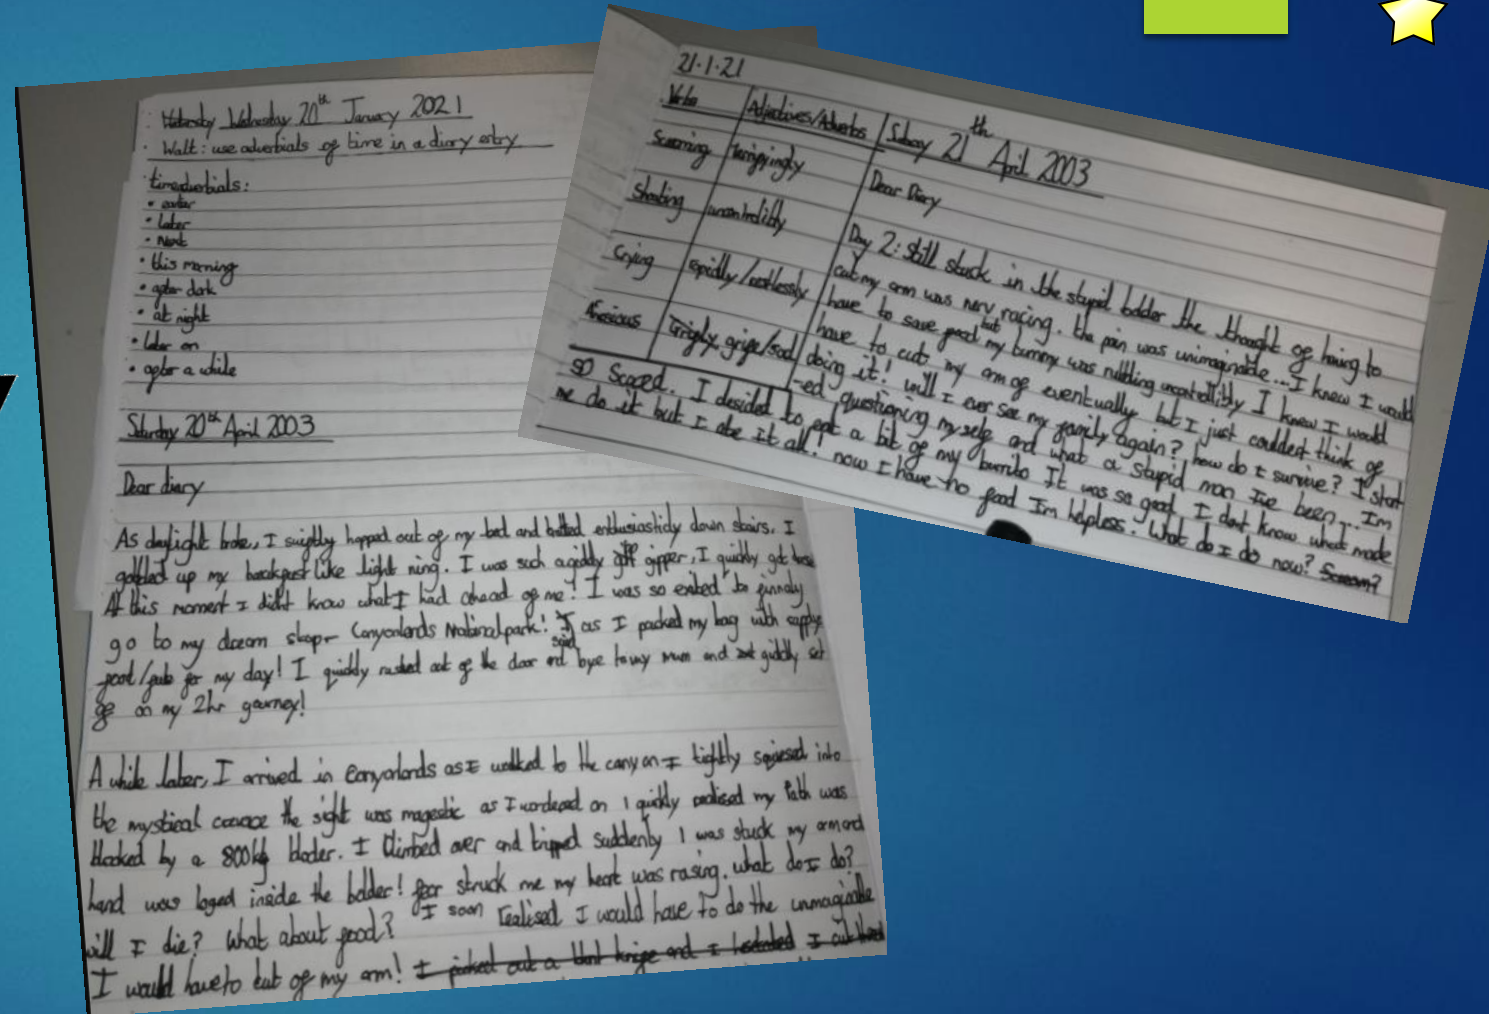 Wednesday 20th January 2021
Walt: use adverbials of time in a diary entry
time adverbials:
• earlier
• later
• Next
• this morning
• after dark
• at night
• later on
• after a while
Saturday 20th April 2003
Dear diary
As daylight broke, I swiftly hopped out of my bed and bolted enthusiasticly down stairs. I
gobbled up my breakfast like light ning. I was such a giddy gipper, I quickly got
At this moment I didnt know what I had ahead of me! I was so exited to finnaly
go to my dream Canyonlands National park! as I packed my bag with
food/ for my day! I quickly rushed out of the door and said bye to my mum and giddly set
of on my 2hr gourney!
A while later, I arrived in Canyonlands as I walked to the canyon I tightly sqisesed into
the mystical the sight was magestic as I wondered on I quickly realised my Path was
blocked by a 800kg bloder. I Climbed over and tripped suddenly I was stuck my arm and
hand was loged inside the bolder! fear struck me my heart was rasing. what do I do?
will I die? What about food? I soon realised I would have To do the unmaginable
I would have to cut of my arm! I picked out a blunt knife and I hesitated I cut
21.1.21
Verbs
Adjectives/Adverbs
Screaming
Shouting
uncontrolibly
Crying
rapidly/restlessly
Sunday 21th April 2003
Dear Diary
Day 2: Still stuck in the stupid bolder the thought of having to
cut my arm was nerv racing. the pain was unimaginable... I knew I would
have to save food but my tummy was rubbling uncontrollibly I knew I would
have to cut my arm of eventually but I just couldent think of
doing it! will I ever see my family again? how do I survive? I start
-ed questioning myself and what a stupid man I've been... Im
so Scared. I desided to eat a bit of my burrito It was so good I dont know what made
me do it but I ate it all! now I have no food Im helpless. What do I do now? Scream?